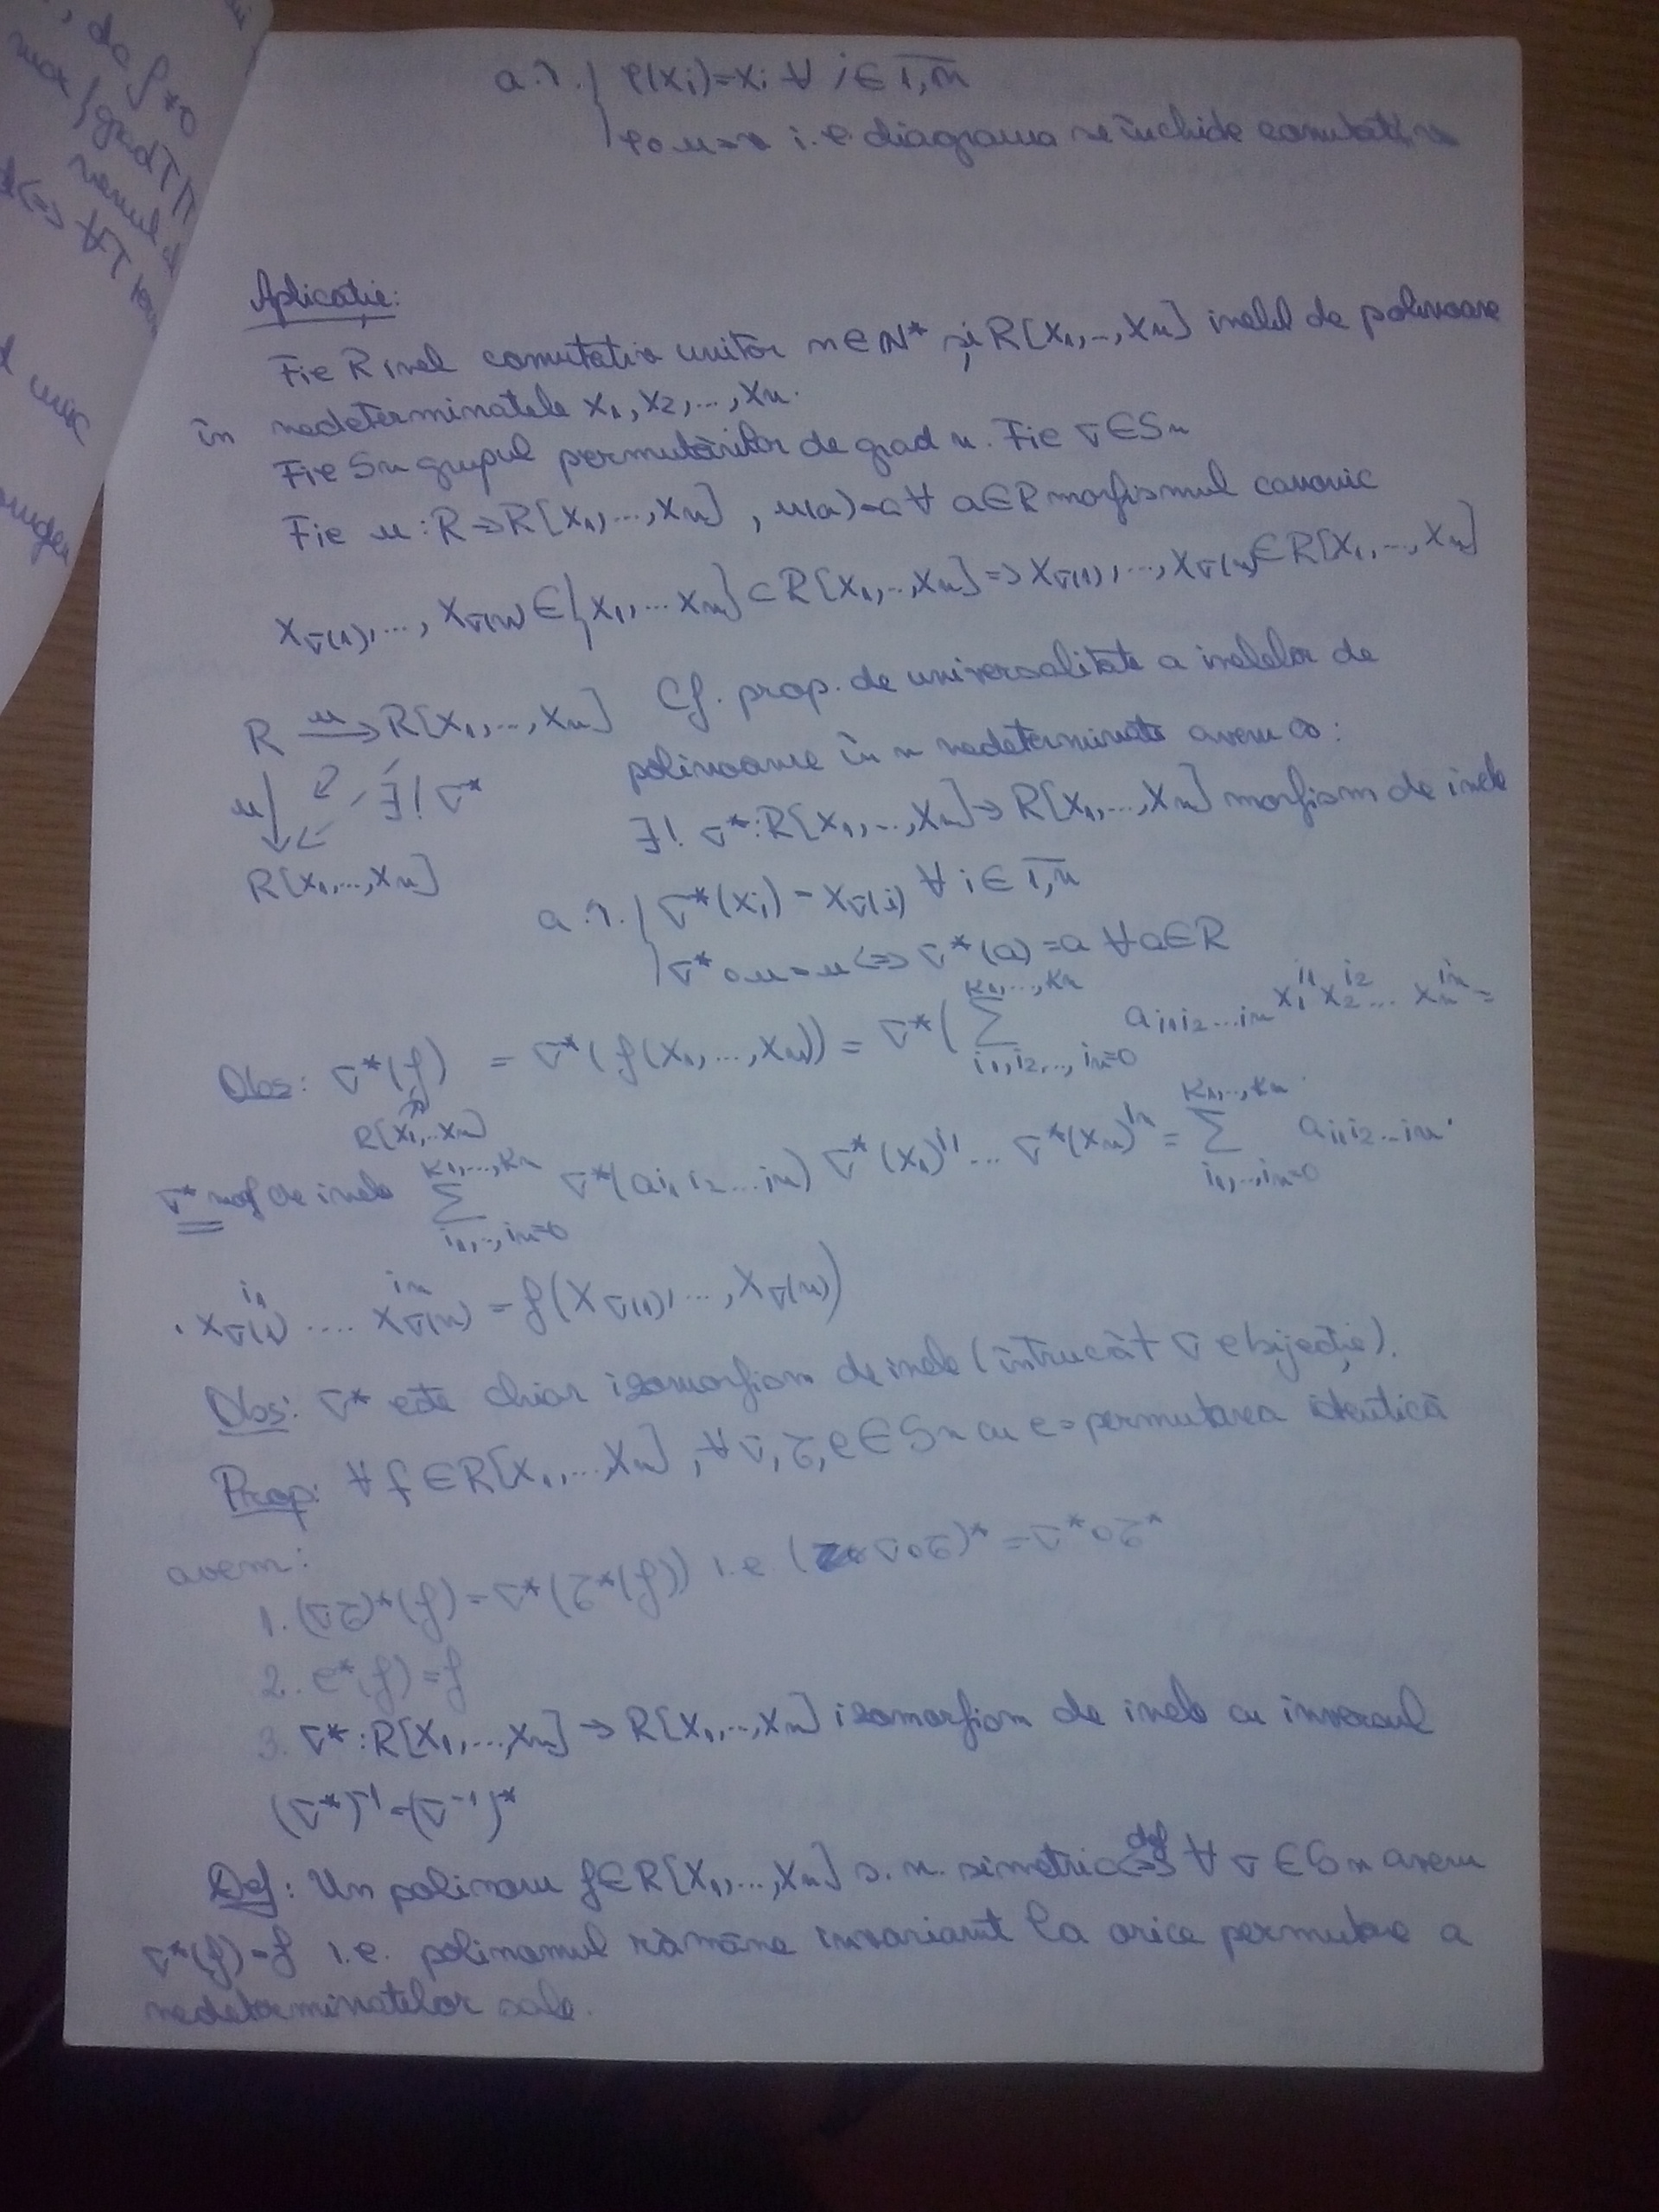 , da f≠0
max {grad T |
a.î. { φ(Xi)=xi ∀ i∈1,n
φ∘u=v i.e diagrama se închide comutativ
Aplicație:
Fie R inel comutativ unitar n∈N* și R[X1,..,Xn] inelul de polinoame
în nedeterminatele X1,X2,...,Xn.
Fie Sn grupul permutărilor de grad n. Fie σ∈Sn
Fie u:R→R[X1,...,Xn], u(a)=a ∀ a∈R morfismul canonic
Xσ(1),...,Xσ(n)∈{X1,...Xn}⊂R[X1,..,Xn]=>Xσ(1),...,Xσ(n)∈R[X1,...,Xn]
R u→ R[X1,...,Xn] Cf. prop. de universalitate a inelelor de
polinoame în n nedeterminate avem că:
u↓ ∃! σ*
∃! σ*:R[X1,...,Xn]→R[X1,...,Xn] morfism de inele
R[X1,...,Xn]
a.î. { σ*(Xi)=Xσ(i) ∀ i∈1,n
σ*∘u=u<=>σ*(a)=a ∀a∈R
Obs: σ*(f) = σ*(f(X1,...,Xn)) = σ*( ∑ i1,i2,..,in=0 k1,...,kn a i1i2...in X1^i1 X2^i2 ... Xn^in =
R[X1,..Xn]
σ* morf de inele ∑ i1,..,in=0 k1,...,kn σ*(a i1 i2...in) σ*(X1)^i1 ... σ*(Xn)^in = ∑ i1,..,in=0 k1,..,kn a i1i2...in ·
· Xσ(1)^i1 .... Xσ(n)^in = f(Xσ(1),...,Xσ(n))
Obs: σ* este chiar izomorfism de inele (întrucât σ e bijecție).
Prop: ∀ f∈R[X1,...,Xn], ∀ σ,τ,e∈Sn cu e=permutarea identică
avem:
1. (στ)*(f)=σ*(τ*(f)) i.e (σ∘τ)*=σ*∘τ*
2. e*(f)=f
3. σ*:R[X1,...,Xn]→R[X1,..,Xn] izomorfism de inele cu inversul
(σ*)^-1=(σ^-1)*
Def: Un polinom f∈R[X1,...,Xn] s.n. simetric <=>def ∀ σ∈Sn avem
σ*(f)=f i.e. polinomul rămâne invariant la orice permutare a
nedeterminatelor sale.